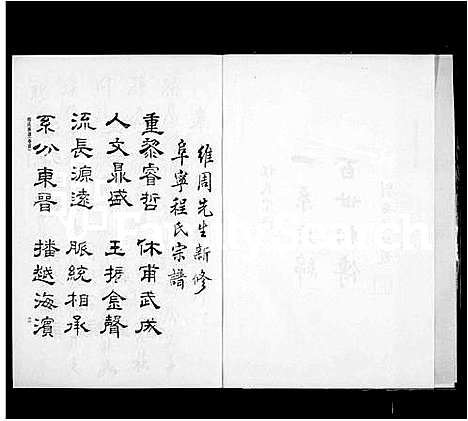 維周先生新修
阜寧程氏宗譜
重黎睿哲　休甫武成
人文鼎盛　玉振金聲
流長源遠　脈統相承
系分東晉　播越海濱